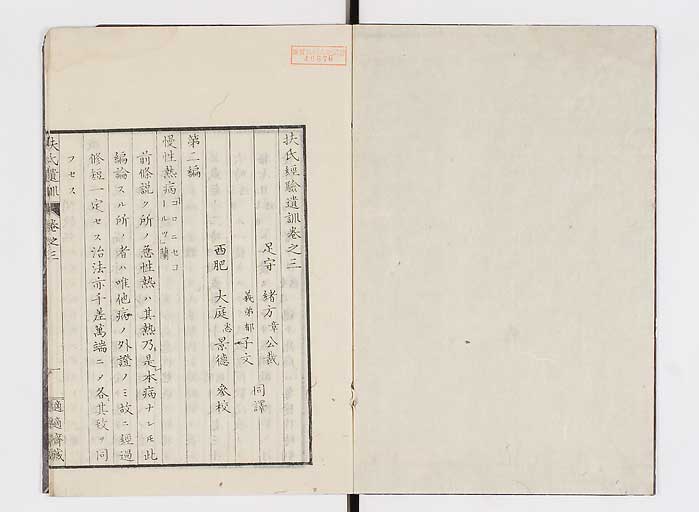 扶氏經驗遺訓卷之三
足守 緒方章公裁
義弟郁子文 同譯
西肥 大庭忞景德 參校
第二編
慢性熱病「コロニセコールツ」蘭
前條說ク所ノ急性熱ハ其熱乃是本病ナレ𪜈此
編論スル所ノ者ハ唯他病ノ外證ノミ故ニ經過
修短一定セス治法亦千差萬端ニメ各其致ヲ同
フセス
扶氏遺訓 卷之三
一
適適齋藏